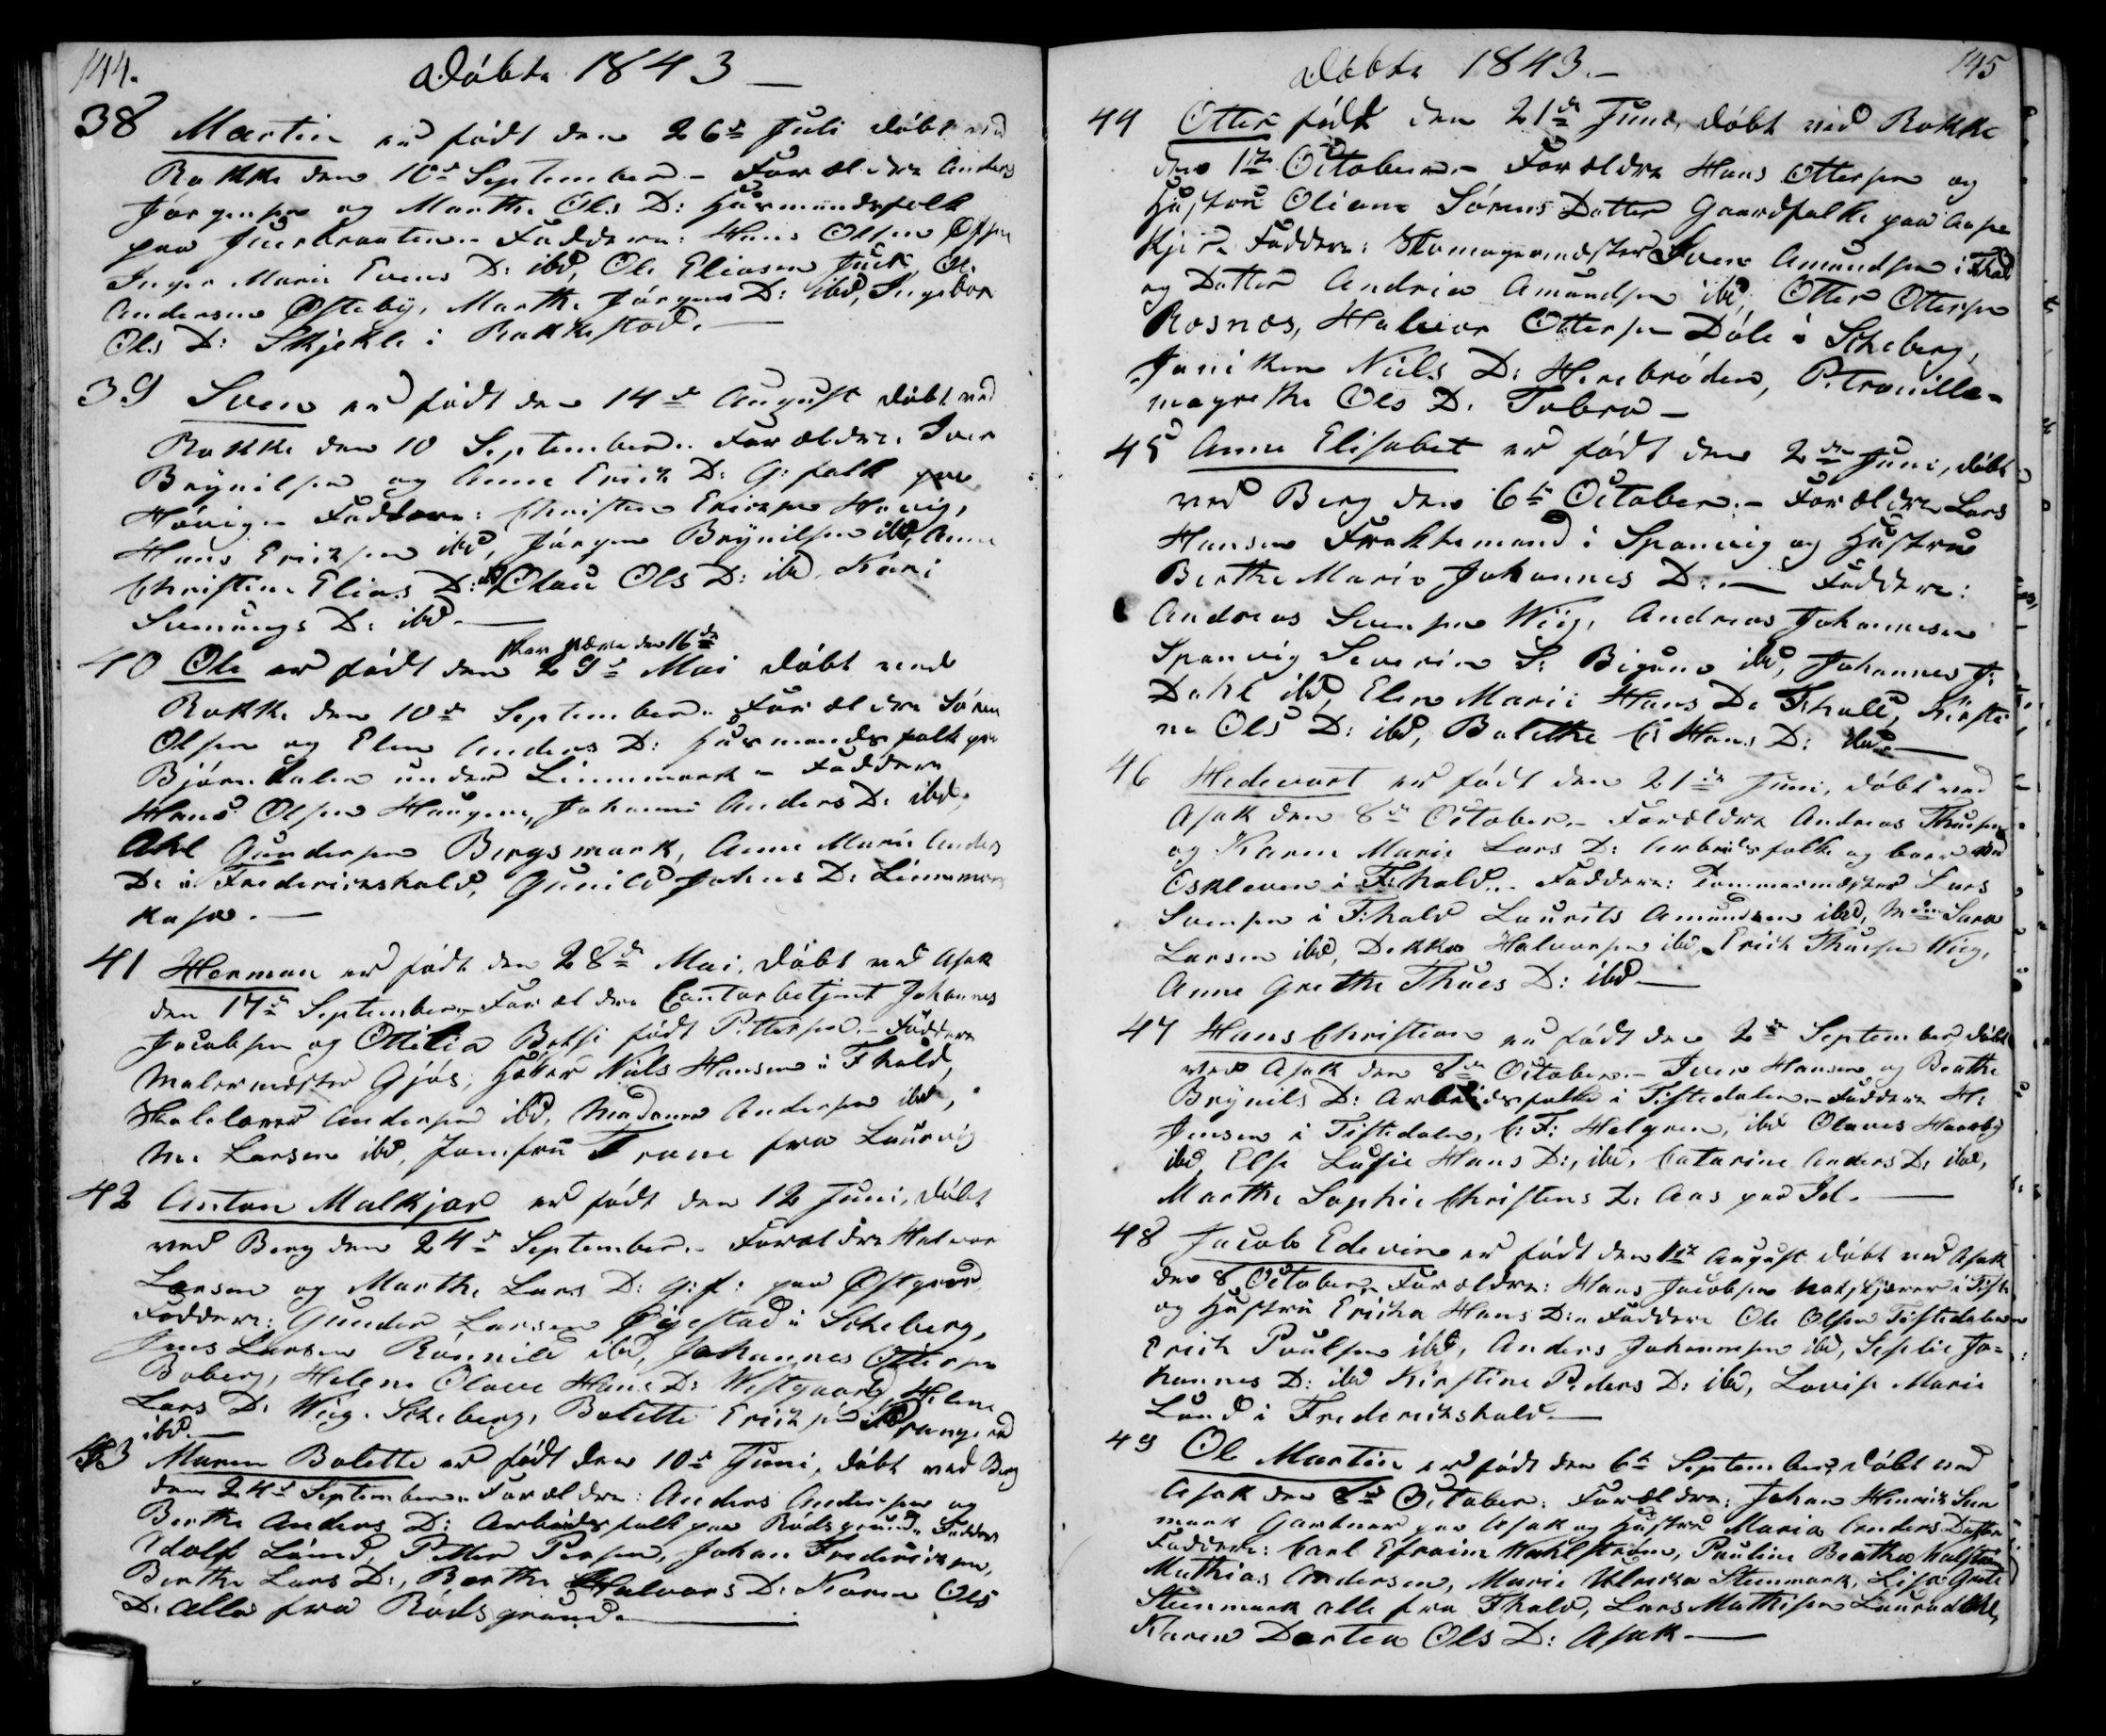 144.
Döbte 1843 —
38 Martin er født den 26de Juli døbt ved
Rokke den 10de September. – Forældre Anders
Jørgensen og Marthe Ols D: Huusmandsfolk
paa – Faddere: Hans Olsen
Inger Marie Evens D: ibd, Ole Eliasen Ole
Andersen Østeby, Marthe Jørgens D: ibd, Ingebor
Ols D: Skjekle i Rakkestad. —
39 Sven er født den 14de August døbt ved
Rokke den 10 September. Forældre: Iver
Brynilsen og Anne Erichs D: G: folk paa
Hövig. – Faddere: Christen Erichsen Hövig,
Hans Erichsen ibd, Jørgen Brynilsen ibd, Anne
Christine Elias D: ibd Olau Ols D: ibd. Kari
D: ibd. —
skar være den 16de
40 Ole er født den 29de Mai døbt ved
Rokke den 10de September. Forældre Sören
Olsen og Elen Anders D: Huusmandsfolk paa
Björndalen under Linnmark – Faddere
Hans Olsen Haugen, Johanne Anders D: ibd,
Axel Gundersen Bergsmark, Anne Marie Anders
D: i Frederikshald, Gunild Johns D: Linnemarks
kasa. —
41 Herman er født den 28de Mai, døbt ved Asak
den 17de September. Forældre Contorbetjent Johannes
Jacobsen og Ottilia Betsi født Pettersen. – Faddere
Malermester Gjös, Höker Niels Hansen i F hald,
Skolelærer Andersen ibd, Madame Andersen ibd,
M: Larsen ibd, Jomfru Trane fra Laurvig
42 Anton Malkjor er født den 12 Juni, døbt
ved Berg den 24de September. – Forældre Halvor
Larsen og Marthe Lars D: g: f: paa Østgaard
Faddere: Gunder Larsen Øijestad i Skeberg,
Jens Larsen Rönnild ibd, Johannes Ottersen
Boberg, Helene Olave Hans D: Westgaard, Helene
Lars D: Wiig. Skeberg, Bolette Erichsen
ibd. —
43 Maren Bolette er født den 10de Juni, døbt ved Berg
den 24de September. Forældre: Anders Andersen og
Berthe Anders D: Arbeidsfolk paa Rödsgrund. Faddere
Adolf Lund, Petter Persen, Johan Frederichsen,
Berthe Lars D:, Berthe Halvors D: Karen Ols
D: alle fra Rödsgrund. —
145
Döbte 1843. —
44 Otter født den 21de Juni, døbt ved Rokke
den 1te October. – Forældre Hans Ottersen og
Hustru Oliane Sörens Datter Gaardfolk paa Aspe
kjer. Faddere: Skomagermester Iver Amundsen i Fhald
og Datter Andrea Amundsen ibd, Otter Ottersen
Rosnes, Halvor Ottersen Döle i Skeberg,
Janiken Niels D: Herrebröden, Petronille
magrethe Ols D. Tobro —
45 Anne Elisabet er født den 2den Juni, døbt
ved Berg den 6te October. – Forældre Lars
Hansen Fragtemand i Sponvig og Hustru
Berthe Marie Johannes D: — Faddere:
Andreas Svensen Wiig, Andreas Johannesen
Sponvig Severin S: ibd, Johannes J:
Dahl ibd, Elen Marie Hans D: Fhald, Kirsti
ne Ols D: ibd, Bolethe C: Hans D: ibd. —
46 Hedevart er født den 21de Juni, døbt ved
Asak den 8de October. – Forældre Andreas Thuesen
og Karen Marie Lars D: Arbeidsfolk og boer ved
Oskleven i F:hald. – Faddere: Tømmermester Lars
Svensen i F:hald Laurits Amundsen ibd, Mdm Sara
Larsen ibd, Halvorsen ibd, Erich Thuesen Wiig,
Anne Grethe Thues D: ibd. —
47 Hans Christian er født den 2de September døbt
ved Asak den 8de October. – Iver Hansen og Berthe
Brynils D: Arbeidsfolk i Tistedalen. – Faddere H:
Jensen i Tistedalen, C: F: Helgren, ibd Olaves Haarby
ibd, Else Lusie Hans D:, ibd, Catarine Anders D: ibd,
Marthe Sophie Christens D: Aas paa Id. —
48 Jacob Edevin er født den 11te August døbt ved Asak
den 8 October. Forældre: Hans Jacobsen i Tiste
og Hustru Ericka Hans D: – Faddere Ole Olsen Tistedalen
Erich Poulsen ibd, Anders Johannesen ibd, Jo=
hannes D: ibd Kirstine Peders D: ibd, Lovise Marie
Lund i Frederikshald. —
49 Ole Martin er født den 6te September, døbt ved
Asak den 8de October. Forældre: Johan Henrich
mark Gartner paa Asak og Hustru Maria Anders Datter
Faddere: Carl Efraim Wahlström, Pauline Beathe
Mathias Andersen, Marie Ulricka Steenmark, Lisa Grete
Steenmark alle fra Fhald, Lars Mathisen
Karen Dortea Ols D: Asak —